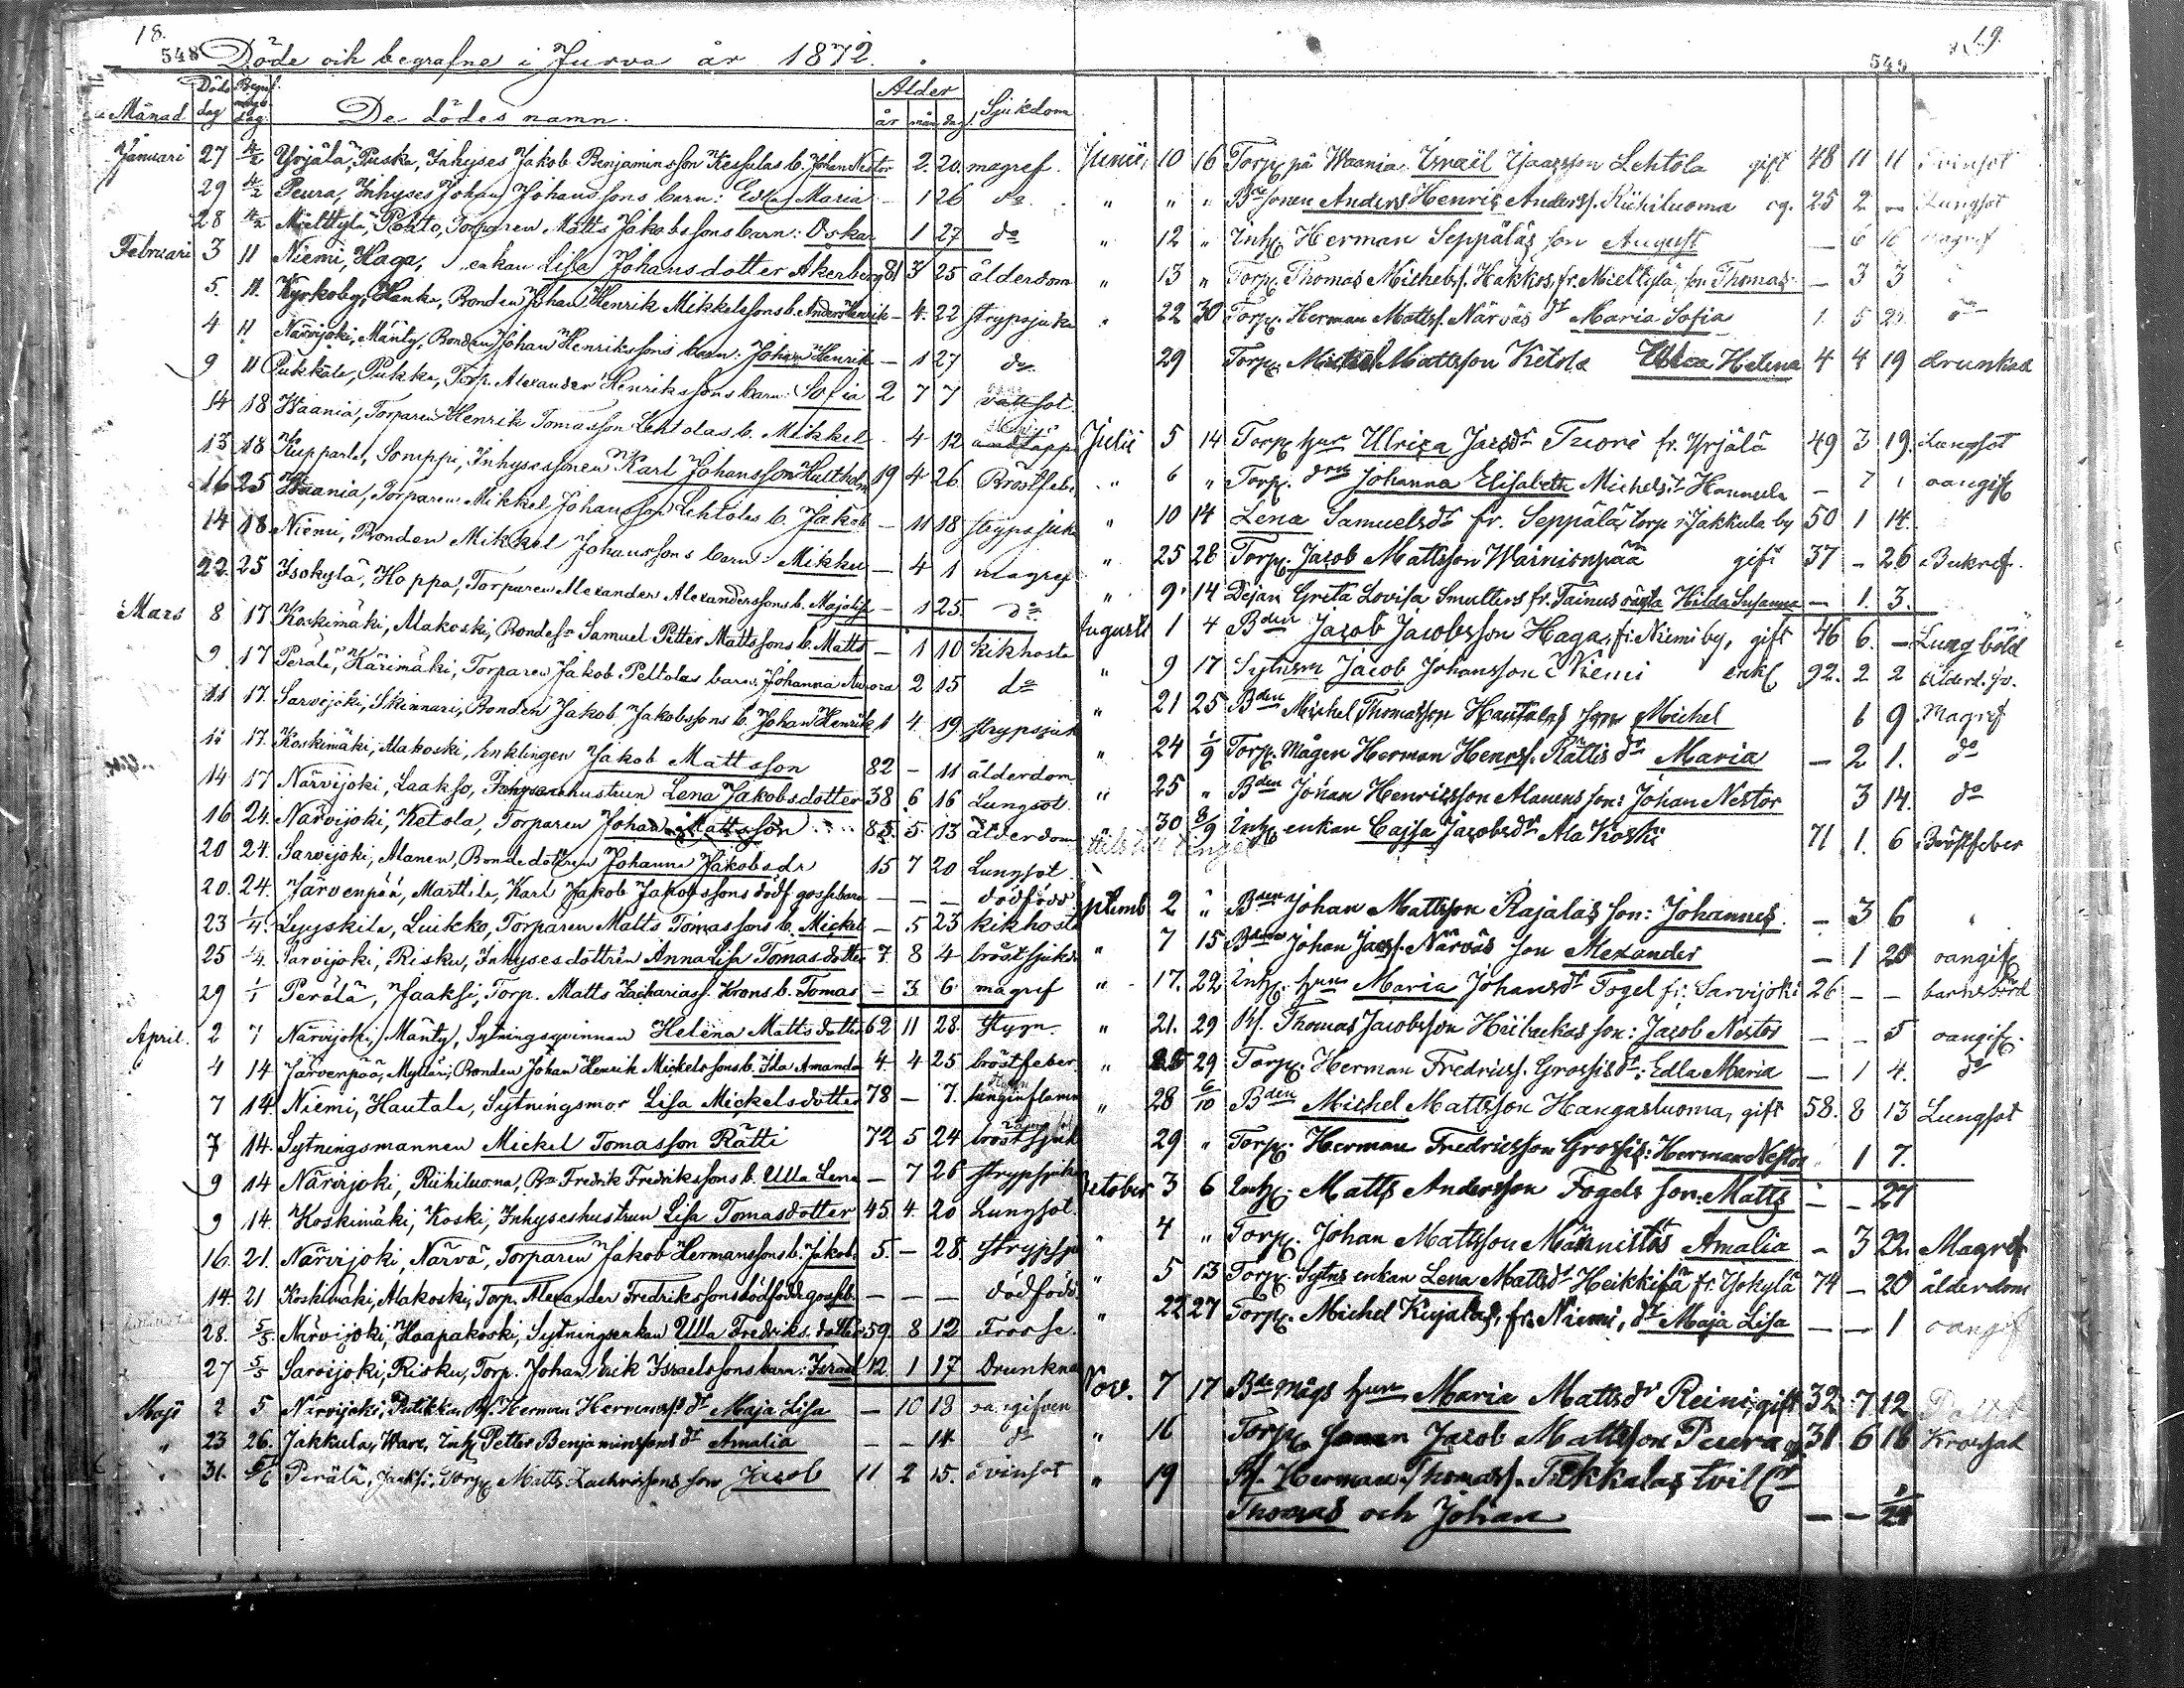 18.
548 Döde och begrafne i Jurva år 1872.
Månad Döds dag Begrafnings dag De dödes namn. Ålder år mån dag Sjukdom
Januari 27 4/2 Yrjälä, Puska, Inhyses Jakob Benjaminsson Kessulas b. Johan Nestor - 2. 20. magref.
29 4/2 Peura, Inhyses Johan Johanssons barn: Edla Maria - 1 26 do.
28 4/2 Miettylä, Pohto, Torparen Matts Jakobssons barn: Oskar 1 27 do
Februari 3 11 Niemi, Haga, enkan Lisa Johansdotter Åkerberg 81 3 25 ålderdom
5. 11. Kyrkoby, Hanka, Bonden Johan Henrik Mikkelssons b. Anders Henrik - 4. 22 strypsjuka
4 11 Närvijoki, Mänty, Bonden Johan Henrikssons barn: Johan Henrik - 1 27 do.
9 11 Pukkala, Pukka, Torp. Alexander Henrikssons barn: Sofia 2 7 7
14 18 Waania, Torparen Henrik Tomasson Lehtolas b. Mikkel - 4 12
13 18 Kupparla, Somppi, Inhysessonen Karl Johansson Hultholm 19 4 26 Bröstfeb.
16 25 Waania, Torparen Mikkel Johansson Lehtolas b. Jakob - 11 18 strypsjuk
14 18 Niemi, Bonden Mikkel Johanssons barn: Mikku - 4 1 magref
22. 25 Isokylä, Hoppa, Torparen Alexanders Alexanderssons b. Majalisa - 1 25. do
Mars 8 17 Koskimäki, Alakoski, Bondes. Samuel Petter Mattssons b. Matts - 1 10 kikhosta
9. 17 Perälä, Kärimäki, Torparen Jakob Peltolas barn: Johanna Aurora 2 15 do
11 17. Sarvijoki, Skinnari, Bonden Jakob Jakobssons b. Johan Henrik 1 4. 19. strypsjuk
11 17. Koskimäki, Alakoski, Enklingen Jakob Mattsson 82 - 11 ålderdom
14 17 Närvijoki, Laakso, Inhyseshustrun Lena Jakobsdotter 38 6 16 Lungsot
16 24. Närvijoki, Ketola, Torparen Johan Mattsson 85. 5. 13 ålderdom
20 24. Sarvijoki, Alanen, Bondedottren Johanna Jakobsdr 15 7 20 Lungsot
20. 24. Järvenpää, Marttila, Karl Jakob Jakobssons dödf gossebarn - - - dödfödd
23 1/4. Lyyskilä, Luikko, Torparen Matts Tomassons b. Mickel - 5 23 kikhosta
25 1/4. Sarvijoki, Risku, Inhysesdottren Anna Lisa Tomasdotter 7. 8 4 bröstsjukd
29 1/1 Perälä, Jaaksi, Torp. Matts Zachariass. Krons b. Tomas - 3 6. magref
April. 2 7 Närvijoki, Mänty, Sytningsqvinnan Helena Mattsdotter 62 11 28.
4 14 Järvenpää, Myllari, Bonden Johan Henrik Mickelssons b. Ida Amanda 4. 4 25 bröstfeber
7 14. Niemi, Hautala, Sytningsmor Lisa Mickelsdotter 78 - 7.
7 14. Sytningsmannen Mickel Tomasson Rätti 72 5 24 bröstsjuk
9 14 Närvijoki, Riihiluoma, Bn Fredrik Fredrikssons b. Ulla Lena - 7 26 strypsjuk
9 14. Koskimäki, Koski, Inhyseshustrun Lisa Tomasdotter 45 4. 20 Lungsot.
16. 21. Närvijoki, Närvä, Torparen Jakob Hermanssons b. Jakob 5. - 28. strypsju
14. 21 Koskimäki, Alakoski, Torp. Alexander Fredrikssons dödfödde gosseb. - - - dödfödd
28. 5/5. Närvijoki, Haapakoski, Sytningsenkan Ulla Fredriks. dotter 59. 8 12 Frossa.
27 5/5 Sarvijoki, Risku, Torp. Johan Erik Israelssons barn: Israel 12. 1 17 Drunkna
Maji 2 5 Närvijoki, Putikka Bs. Herman Hermanss. dr Maja Lisa - 10 18 oangifven
" 23 26. Jakkula, Ware, Inh. Petter Benjaminssons dr Amalia - - 14 do
" 31. Perälä, Jaaksi, Torp. Matts Zachrissons son Jacob 11. 2 15. Tvinsot
19.
549
Junii, 10 16 Torp. på Waania Israël Isaacsson Lehtola gift 48 11 11 Tvinsot
" " " Bde sonen Anders Henric Anderss. Riihiluoma og. 25 2 - Lungsot
" 12 " Inh. Herman Seppäläs son August - 6 16 Magref
" 13 " Torp. Thomas Michelss. Hakkos, fr. Miettylä, son Thomas - 3 3 "
" 22 30 Torp. Herman Mattss. Närväs dr Maria Sofia 1. 5 22. do
29 Torp. Michel Mattsson Ketola Helena 4 4 19 drunknad
Julii 5 14 Torp. hun Ulrica Jacsdr Tuori fr. Yrjälä 49 3 19. Lungsot
" 6 " Torp. dren Johanna Elisabeth Michelsdr Hannula - 7 1 oangif
" 10 14 Lena Samuelsdr fr. Seppälä torp i Jakkula by 50 1 14.
" 25 28 Torp. Jacob Mattsson Wainionpää gift 37 - 26 Bukref.
" 9. 14 Dejan Greta Lovisa Smulters fr. Tainus oägta Hilda Susanna - 1. 3.
Augusti 1 4 Bden Jacob Jacobsson Haga, fr. Niemi by, gift 46 6. - Lungböld
" 9 17 Sytnsm Jacob Johansson Niemi enkl 92. 2 2
" 21 25 Bden Michel Thomasson Hautalas son Michel 6 9 Magref
" 24 1/9 Torp. mågen Herman Henrss. Rättis dr Maria - 2 1. do
" 25 " Bden Johan Henricsson Alanens son: Johan Nestor 3 14. do
" 30 8/9 Inh. enkan Cajsa Jacobsdr Ala Koski 71 1. 6 Bröstfeber
ptemb 2 " Bden Johan Mattsson Rajalas son: Johannes. - 3 6 "
" 7 15 Bden Johan Jacss. Närväs son Alexander - 1 20 oangif
" 17. 22 Inh. hun Maria Johansdr Fogel fr. Sarvijoki 26 - - barnsbörd
" 21. 29 Bs. Thomas Jacobsson Hiilackas son: Jacob Nestor - - 5 oangif.
" 25 29 Torp. Herman Fredricss. Grossis dr: Edla Maria - 1 4. do
" 28 6/10 Bden Michel Mattsson Hangasluoma, gift 58. 8 13 Lungsot
29 " Torp. Herman Fredricsson Grossis: Herman Nestor 1 7.
October 3 6 Inh. Matts Andersson Fogels son: Matts - - 27
" 4 " Torp. Johan Mattsson Männistös Amalia - 3 22. Magref
" 5 13 Torp. Sytns enkan Lena Mattsdr Heikkilä fr. Isokylä 74 - 20 ålderdom
" 22 27 Torp. Michel Kujalas, fr. Niemi, dr Maja Lisa - - 1 oangif
Nov. 7 17 Bde mågs hun Maria Mattsdr Reini, gift 32 7 12
" 16 Torp. sonen Jacob Mattsson Peura og 31 6 16
" 19 Bs. Herman Thomass. Tukkalas tvil.
Thomas och Johan - -